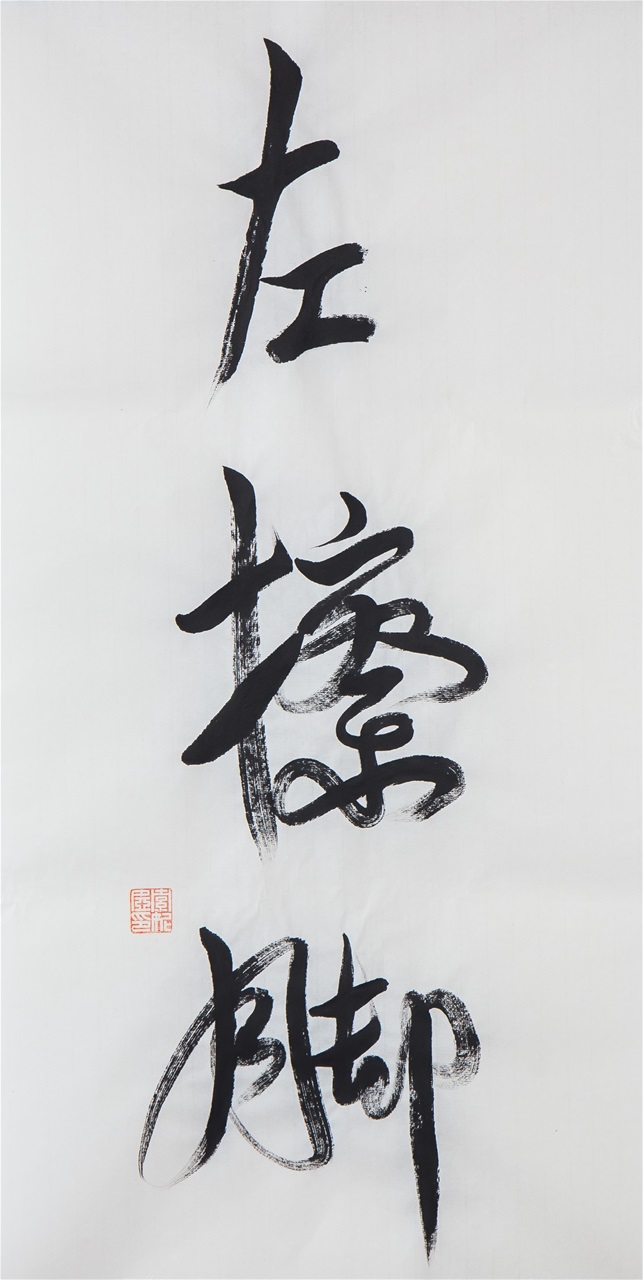 左擦脚